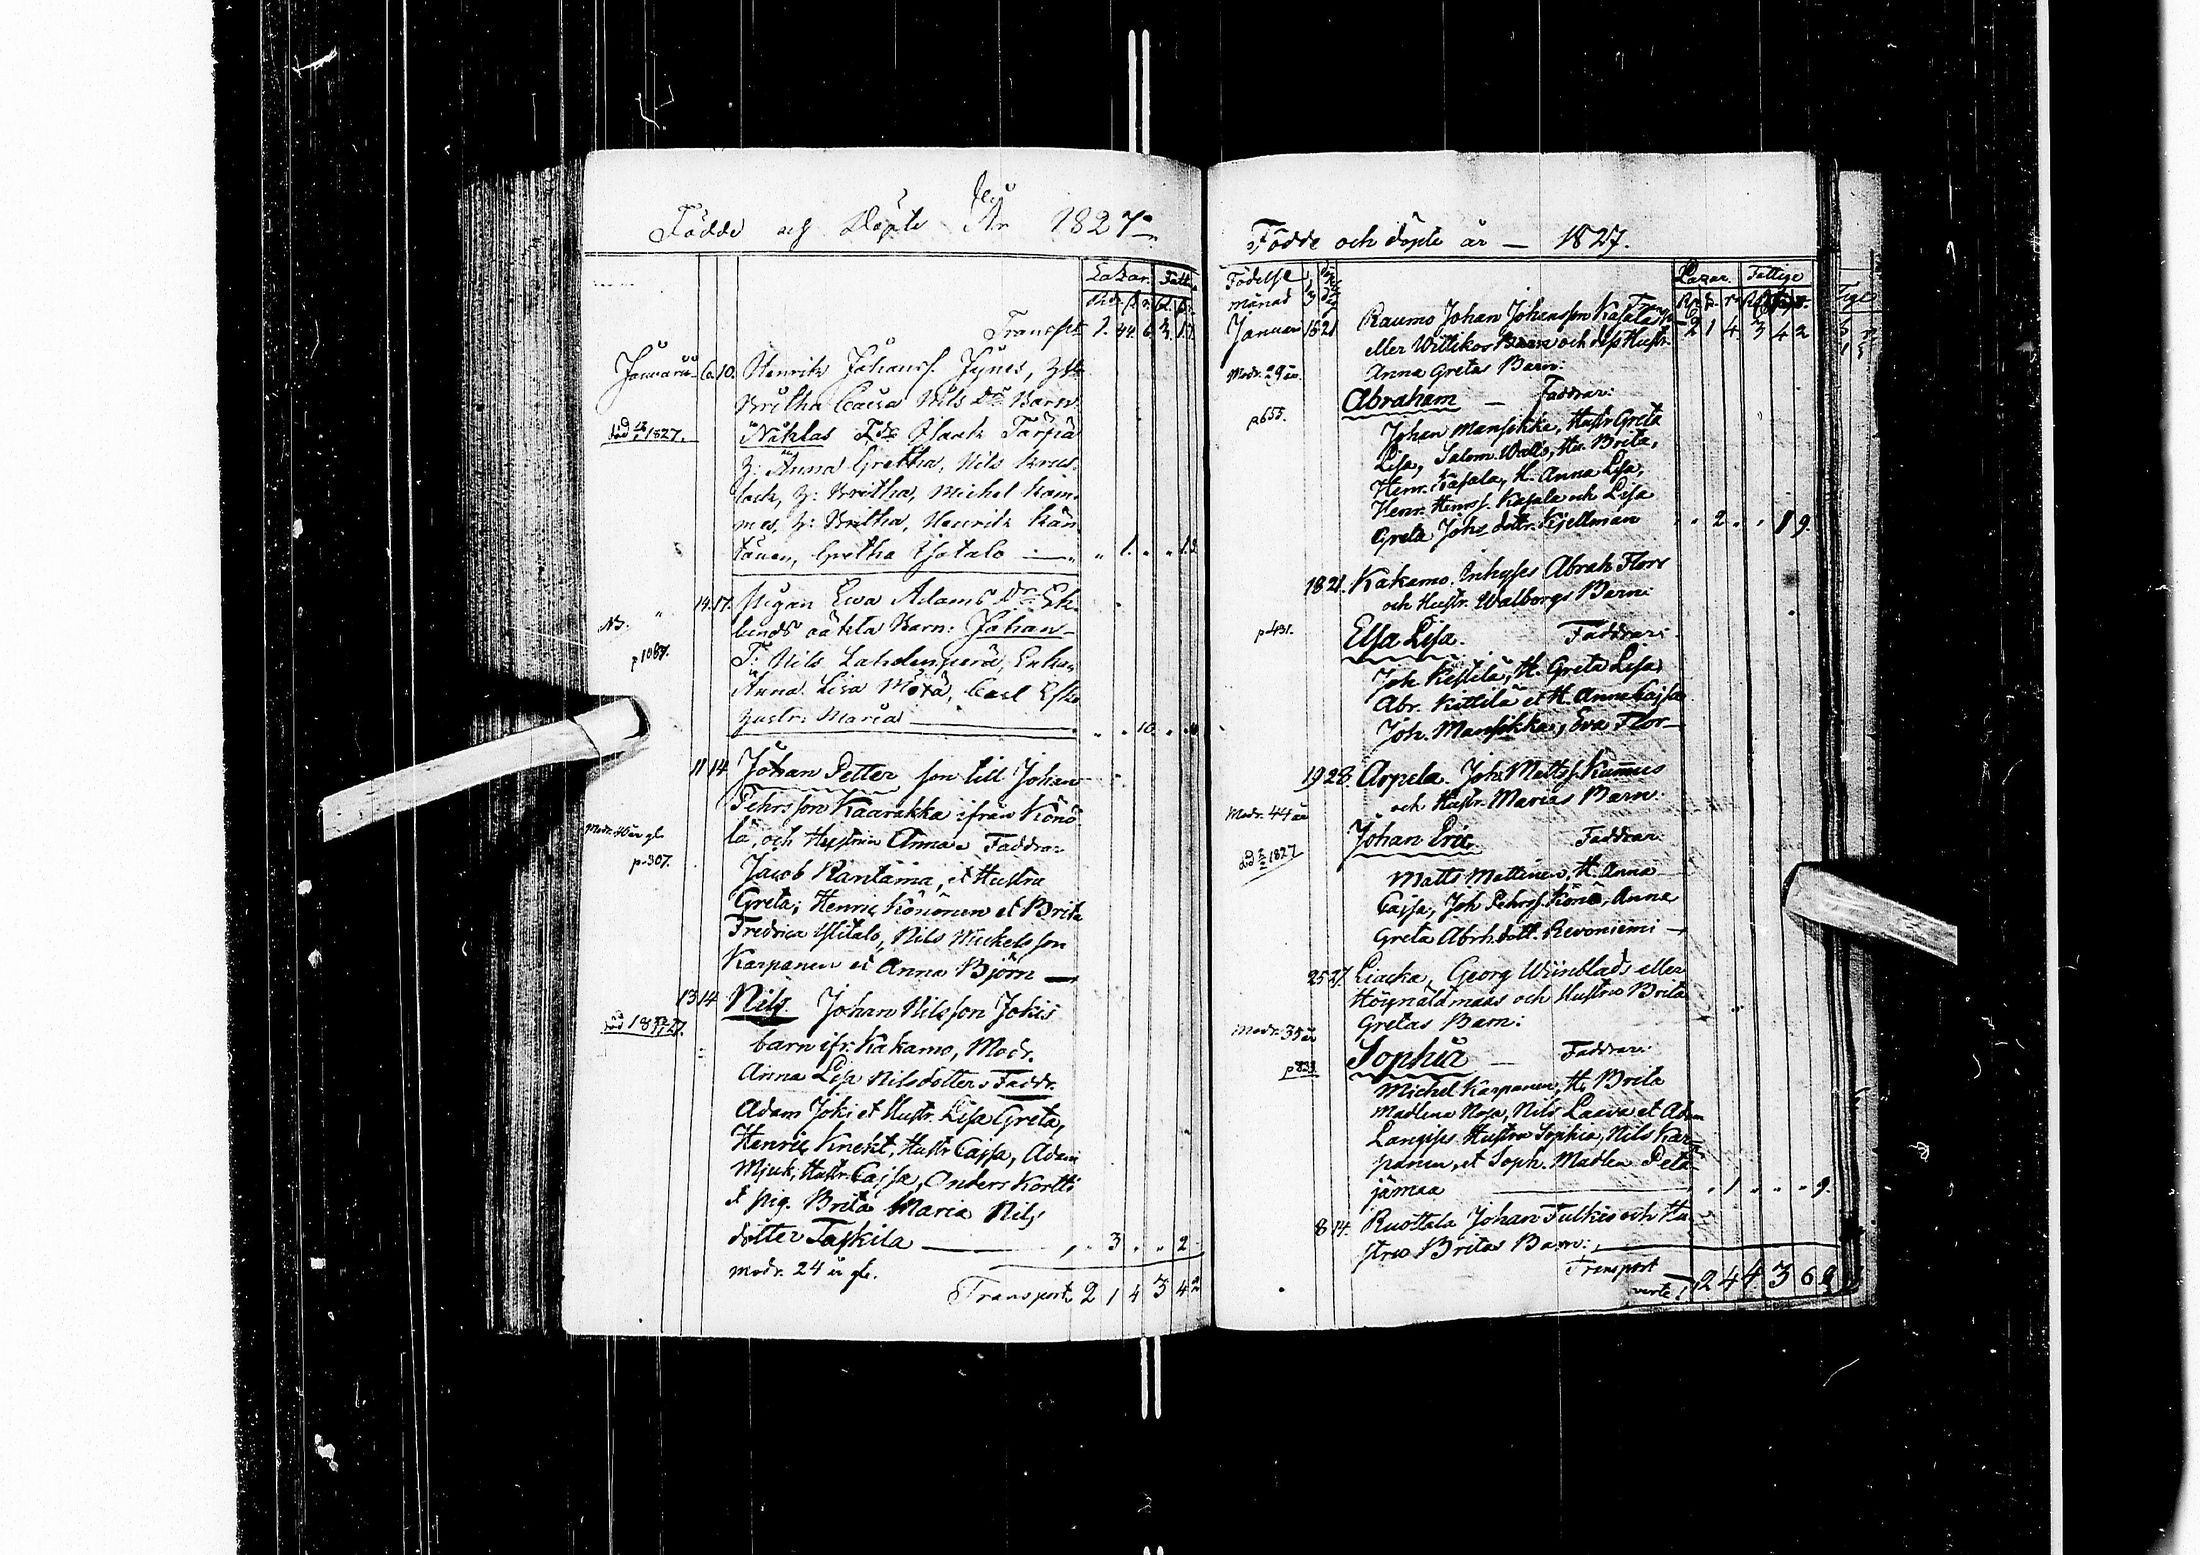 Födde och Döpte År 1827.
Lazar. Fattig
Transpt 2. 44. 6. 3. 17.
Januarii 6. 10. Henrik Johanss. Jynes, H:
Britha Caisa Nils Dr Barn
död 1827. Niklas
H: Anna Gretha, Nils
H: Britha, Michel Kam-
mes, H: Britha, Henrik Kän-
tänen, Gretha Ylitalo — 1. 13.
14. 17. Pigan Ewa Adams Dr Ek-
lunds oäkta Barn: Johan
p 1087. T: Nils Lahdenperä, Enka
Anna Lisa Mötä, Carl
Hustr: Maria — 10.
11 14 Johan Petter son till Johan
Pehrsson Kaarakka ifrån Könö-
lä, och Hustrun Anna. Faddrar
p. 307. Jacob Rantama, et Hustru
Greta; Henric Könönen et Brita
Fredrica Ylitalo, Nils Mickelsson
Karpanen et Anna Björn —
13 14 Nils. Johan Nilsson Jokis
barn ifr: Kakamo, Modr.
Anna Lisa Nilsdotter. Faddr.
Adam Joki et Hustr. Lisa Greta,
Henric Knekt, Hustr Cajsa, Adam
Mjuk, Hustr. Cajsa, Anders Kortti
et pig. Brita Maria Nils
dotter Taskila — 3 2
modr. 24 år gl.
Transport 2 1 4 3 4 2
Födde och döpte år — 1827.
Födelse
månad
Lazar. Fattige
Januari 18 21 Raumo Johan Johansson Kasala 2 1 4 3 4 2
eller Wittikos Barn och dess Hustr.
Modr. 29 år. Anna Gretas Barn:
p 655. Abraham — Faddrar:
Johan Mansikka, Hustr Greta
Lisa, Salom. Walls, Hu. Brita,
Henr. Kasala, H. Anna Lisa,
Henr. Henrss. Kasala och Lisa
Greta Johs dottr. Kjellman 2 19.
18 21. Kakamo. Inhyses Abrah Flors
och Hustr. Walborgs Barn:
p 431. Elsa Lisa. Faddrar:
Joh. Kestilä, H. Greta Lisa
Abr. Kittilä et H. Anna Cajsa
Joh. Mansikka, Eva Flor —
19 28. Arpela. Joh. Mattss. Kummus
och Hustr. Marias Barn.
Modr. 44 år
Johan Eric Faddrar
död 1827 Matts Mattinen, H. Anna
Cajsa, Joh Pehrss. Könö, Anna
Greta Abrh. dott. Revoniemi —
25 27. Liacka, Georg Winblads eller
Höynäldmaas och Hustrus Brita
Modr. 35 år Gretas Barn:
p 839 Sophia — Faddrar:
Michel Karpanen, H. Brita
Madlena Nosa, Nils Laava et Adam
Langises Hustru Sophia, Nils Kar-
panen, et Soph. Madlen Petä-
jämaa — 1 9.
8 14. Ruottala Johan Fulkis och Hu-
strus Britas Barn:
Transport
verte! 2 4 4 3 6 2